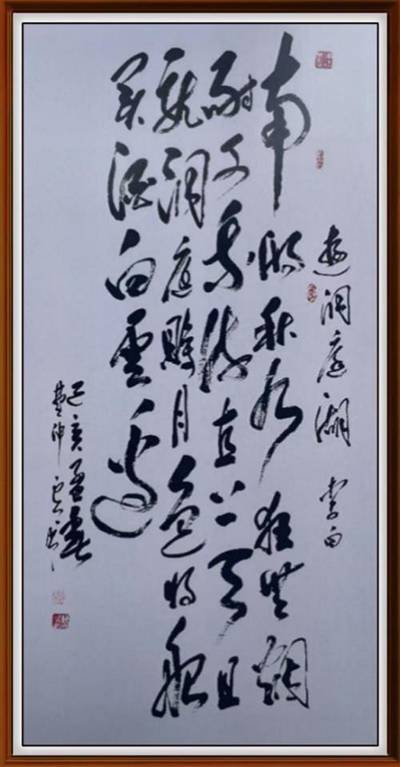 遊洞庭湖 李白
南湖秋水夜無烟
耐可乘流直上天且
就洞庭賒月色將船
買酒白雲邊
己亥孟春
書